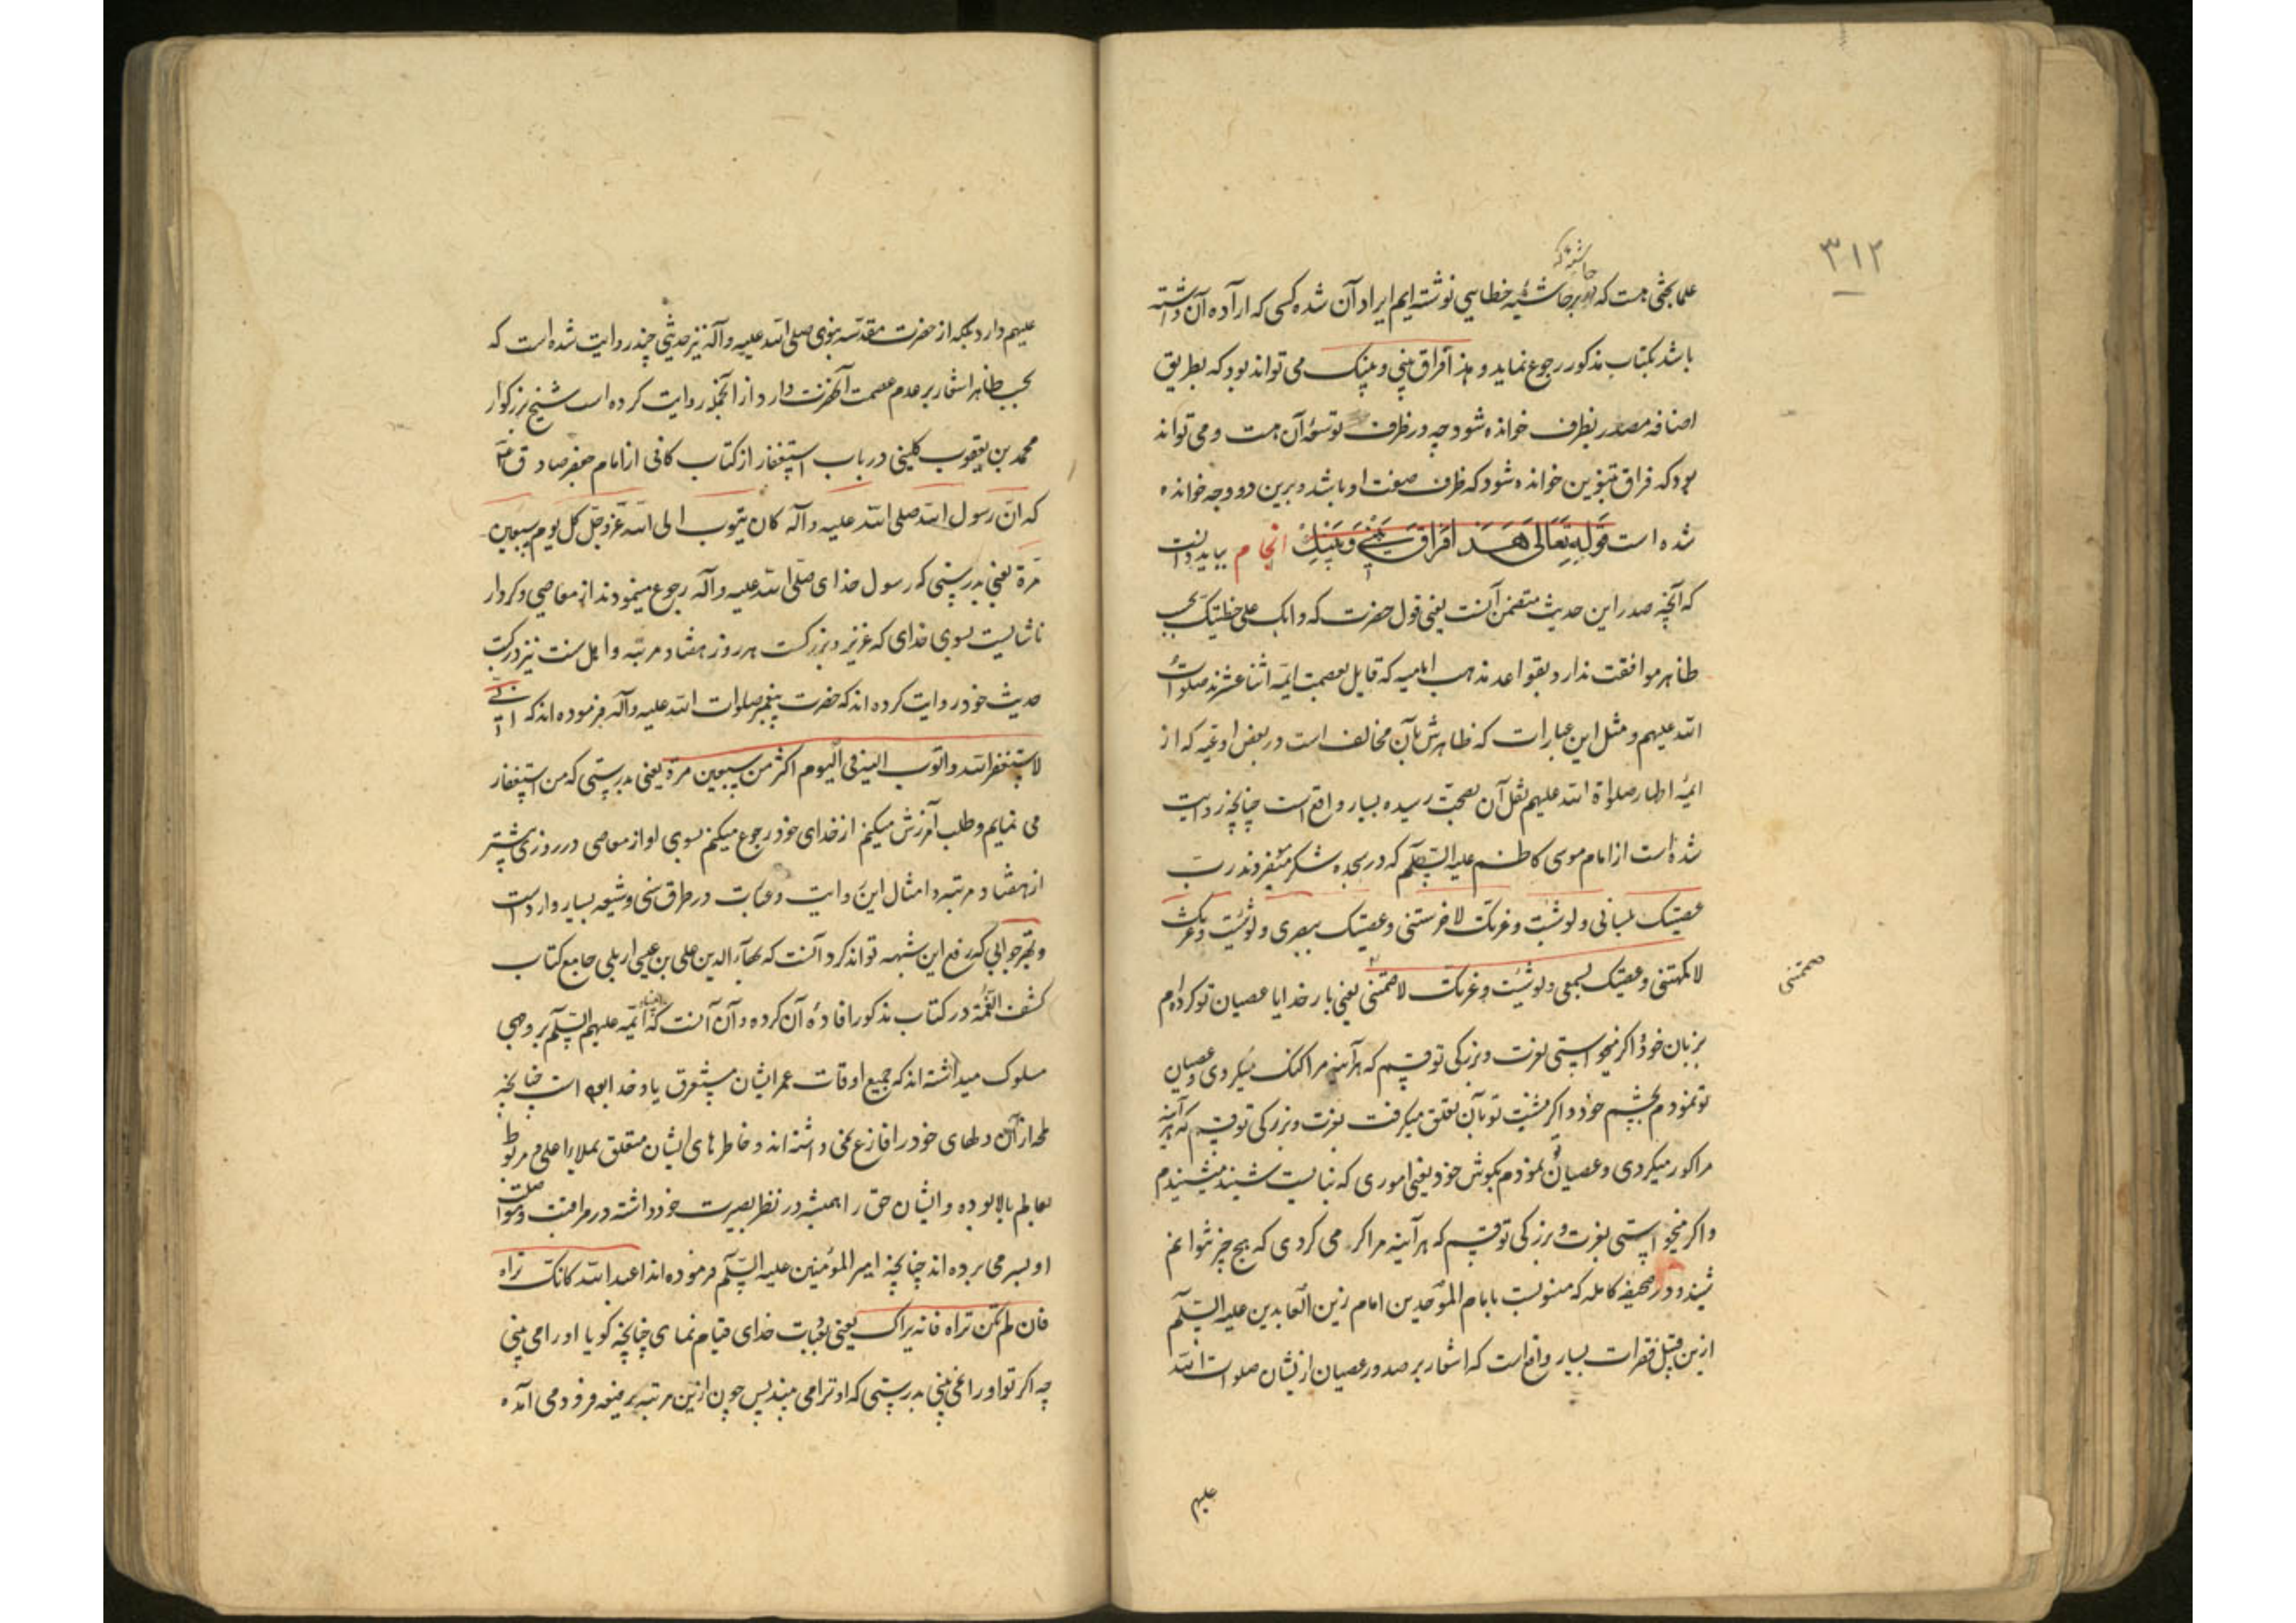 ۳۱۲
حاشیه که
علما بحثی هست که در بر حاشیهٔ خطایی نوشته‌ایم ایراد آن شده کسی که اراده آن داشته
باشد بکتاب مذکور رجوع نماید و هذا فراق بینی و بینک می تواند بود که بطریق
اضافه مصدر بظرف خوانده شود چه در ظرف توسعهٔ آن هست و می تواند
بود که فراق بتنوین خوانده شود که ظرف صفت او باشد و برین دو وجه خوانده
شده است قوله تعالی هَذَا فِرَاقُ بَيْنِي وَبَيْنِكَ انجام بباید دانست
که آنچه صدر این حدیث متضمن آنست یعنی قول حضرت که وابک علی خطیئتک بحسب
ظاهر موافقت ندارد بقواعد مذهب امامیه که قایل بعصمت ائمه اثنا عشرند صلوات
الله علیهم و مثل این عبارات که ظاهرش بآن مخالف است در بعض ادعیه که از
ائمهٔ اطهار صلواة الله علیهم نقل آن بصحت رسیده بسیار واقع است چنانچه روایت
شده است از امام موسی کاظم علیه السلم که در سجده شکر میفرمودند رب
عصیتک بلسانی ولو شئت وعزتک لاخرستنی وعصیتک ببصری ولو شئت وعزتک
لاکمهتنی وعصیتک بسمعی ولو شئت وعزتک لاصممتنی یعنی بار خدایا عصیان تو کرده‌ام
صممتنی
بزبان خود اگر میخواستی بعزت و بزرکی تو قسم که هرآینه مرا کنک میکردی و عصیان
تو نمودم بچشم خود و اگر مشیت تو بآن تعلق میکرفت بعزت و بزرکی تو قسم که هرآینه
مرا کور میکردی و عصیان تو نمودم بکوش خود یعنی اموری که نبایست شنید میشنیدم
و اکر میخواستی بعزت و بزرکی تو قسم که هر آینه مرا کر می کردی که هیچ چیز نتوانم
شنید و در صحیفه کامله که منسوبست بامام الموحدین امام زین العابدین علیه السلم
ازین قبیل فقرات بسیار واقع است که اشعار بر صدور عصیان ازیشان صلوات الله
علیهم
علیهم دارد بلکه از حضرت مقدسه نبوی صلی الله علیه وآله نیز حدیثی چند روایت شده است که
بحسب ظاهر اشعار بر عدم عصمت آنحضرت دارد از آنجمله روایت کرده است شیخ بزرکوار
محمد بن یعقوب کلینی در باب استغفار از کتاب کافی از امام جعفر صادق ع
که ان رسول الله صلی الله علیه وآله کان یتوب الی الله عزوجل کل یوم سبعین
مرة یعنی بدرستی که رسول خدای صلی الله علیه وآله رجوع مینمودند از معاصی و کردار
ناشایست بسوی خدای که عزیز و بزرکست هر روز هفتاد مرتبه و اهل سنت نیز در کتب
حدیث خود روایت کرده‌اند که حضرت پیغمبر صلوات الله علیه وآله فرموده‌اند که انی
لاستغفر الله واتوب الیه فی الیوم اکثر من سبعین مرة یعنی بدرستی که من استغفار
می نمایم و طلب آمرزش میکنم از خدای خود رجوع میکنم بسوی او از معاصی در روزی بیشتر
از هفتاد مرتبه و امثال این روایت و عبارت در طرق سنی و شیعه بسیار وارد است
و بهتر جوابی که رفع این شبهه تواند کرد آنست که بهاء الدین علی بن عیسی اربلی جامع کتاب
کشف الغمة در کتاب مذکور افادهٔ آن کرده و آن آنست که انبیا و ائمه علیهم السلم بر وجهی
سلوک میداشته‌اند که جمیع اوقات عمر ایشان مستغرق یاد خدا بوده است چنانچه
لمحه از آن دلهای خود را فارغ نمی داشته‌اند و خاطرهای ایشان متعلق بملاء اعلی و مربوط
بعالم بالا بوده و ایشان حق را همیشه در نظر بصیرت خود داشته در مراقبت و مواصلت
او بسر می برده‌اند چنانچه امیر المؤمنین علیه السلم فرموده‌اند اعبد الله کانک تراه
فان لم تکن تراه فانه یراک یعنی بعبادت خدای قیام نمای چنانچه کویا او را می بینی
چه اکر تو او را نمی بینی بدرستی که او ترا می بیند پس چون ازین مرتبه رفیعه فرود می آمده